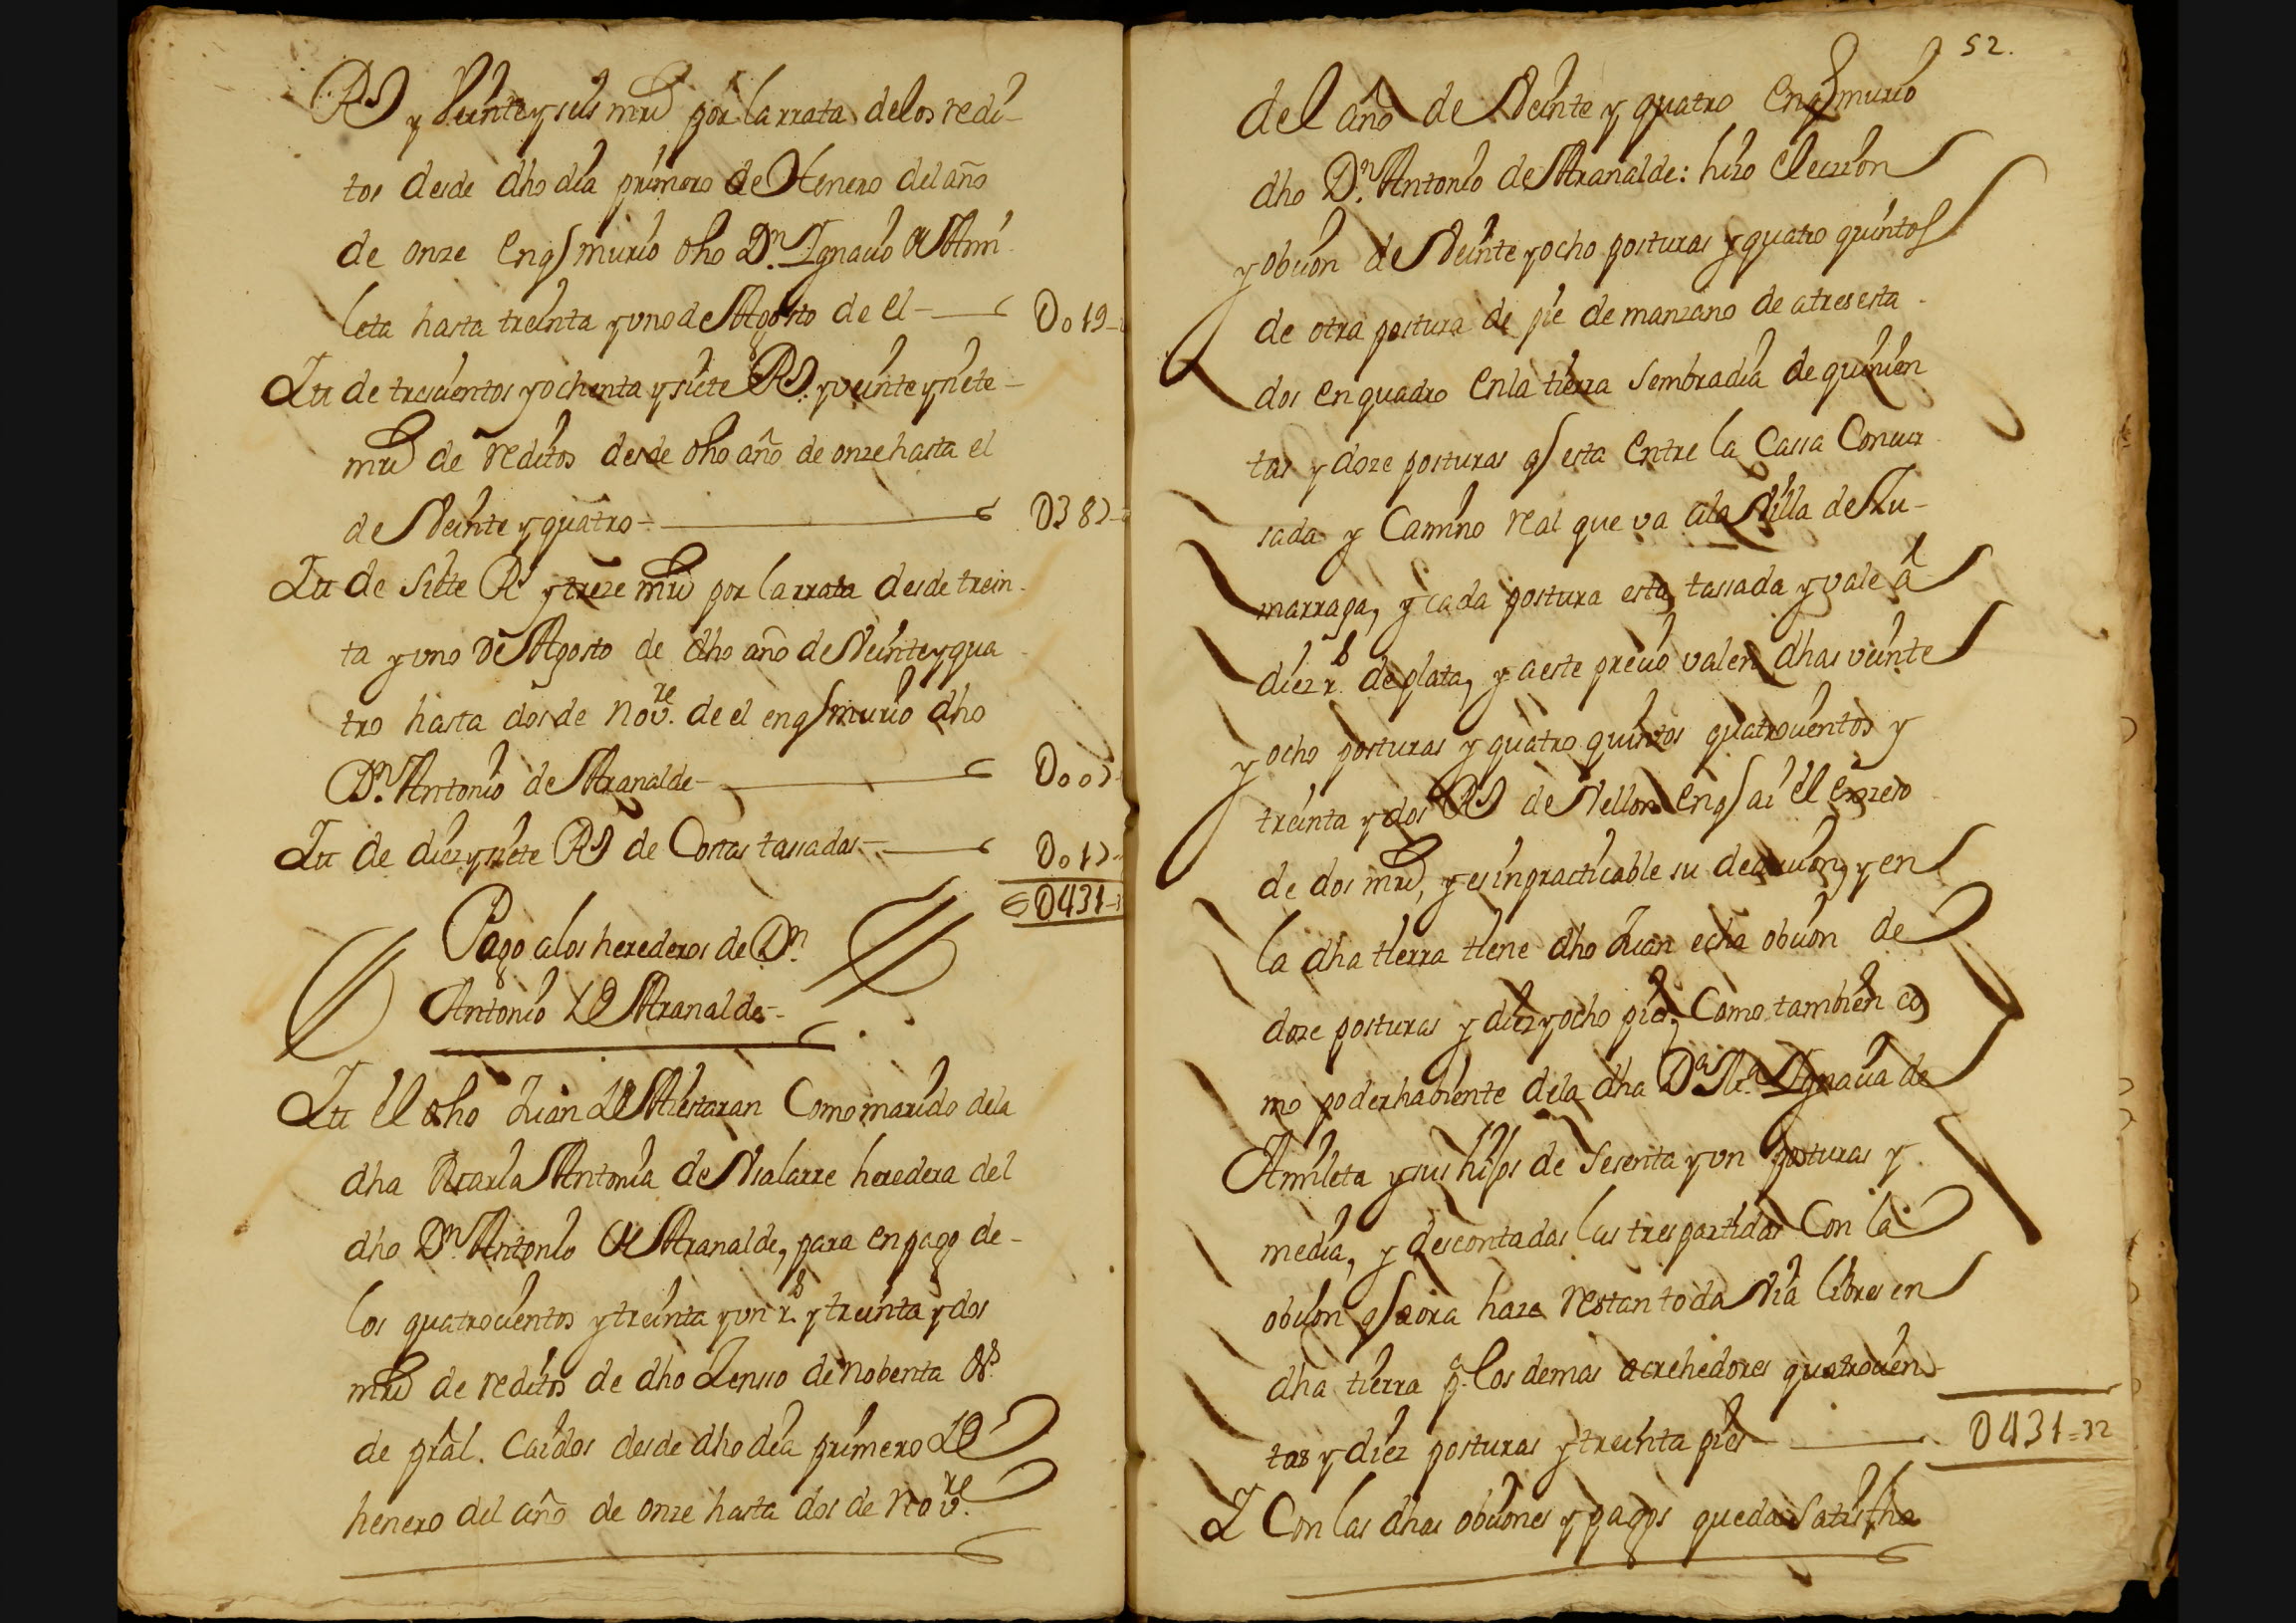 Rs y Veinte y seis mrs por la rrata delos redi-
tos desde dho dia primero de Henero del año
de onze en q murio dho Dn. Ignacio de Ami-
leta hasta treinta y uno de Agosto de el - D019
Itt de trescientos y ochenta y siete Rs. y veinte y siete-
mrs de reditos desde dho año de onze hasta el
de Veinte y quatro - D387
Itt de siete Rs y treze mrs por la rrata desde trein-
ta y uno de Agosto de dho año de Veinte y qua
tro hasta dos de novre. de el en q murio dho
Dn. Antonio de Aranalde - D007
Itt de diez y siete Rs de Costas tassadas - D017
D431
Pago alos herederos de Dn.
Antonio de Aranalde-
Itt El dho Juan de Aiestaran Como marido dela
dha Maria Antonia de Yalarre heredera del
dho Dn. Antonio de Aranalde, para en pago de-
los quatrocientos y treinta y un rs. y treinta y dos
mrs de reditos de dho Zensso de nobenta ds.
de pral. Caidos desde dho dia primero de
henero del año de onze hasta dos de novre.
52.
del año de Veinte y quatro En q murio
dho Dn. Antonio de Aranalde: hizo Eleczion
y obcion de Veinte y ocho posturas y quatro quintos
de otra postura de pie de manzano de a tres esta-
dos en quadro En la tierra Sembradia de quinien
tas y doze posturas q esta Entre la Cassa Concur
sada y Camino real que va ala Villa de Zu-
marraga, y cada postura esta tassada y vale â
diez rs. de plata, y a este precio valen dhas veinte
y ocho posturas y quatro quintos quatrocientos y
treinta y dos Rs de Vellon En q ai El Exzeso
de dos mrs, y es inpracticable su deduccion, y en
la dha tierra tiene dho Juan echa obcion de
doze posturas y diez y ocho pies, Como tambien co
mo poderhabiente dela dha Da. Ma. Ignacia de
Amileta y sus hijos de Sesenta y un posturas y
media, y descontadas las tres partidas Con la
obcion q aora haze restan toda Via libres en
dha tierra pa. los demas acrehedores quatrocien-
tas y diez posturas y treinta pies - D431=32
I Con las dhas obciones y pagos queda Satisfha